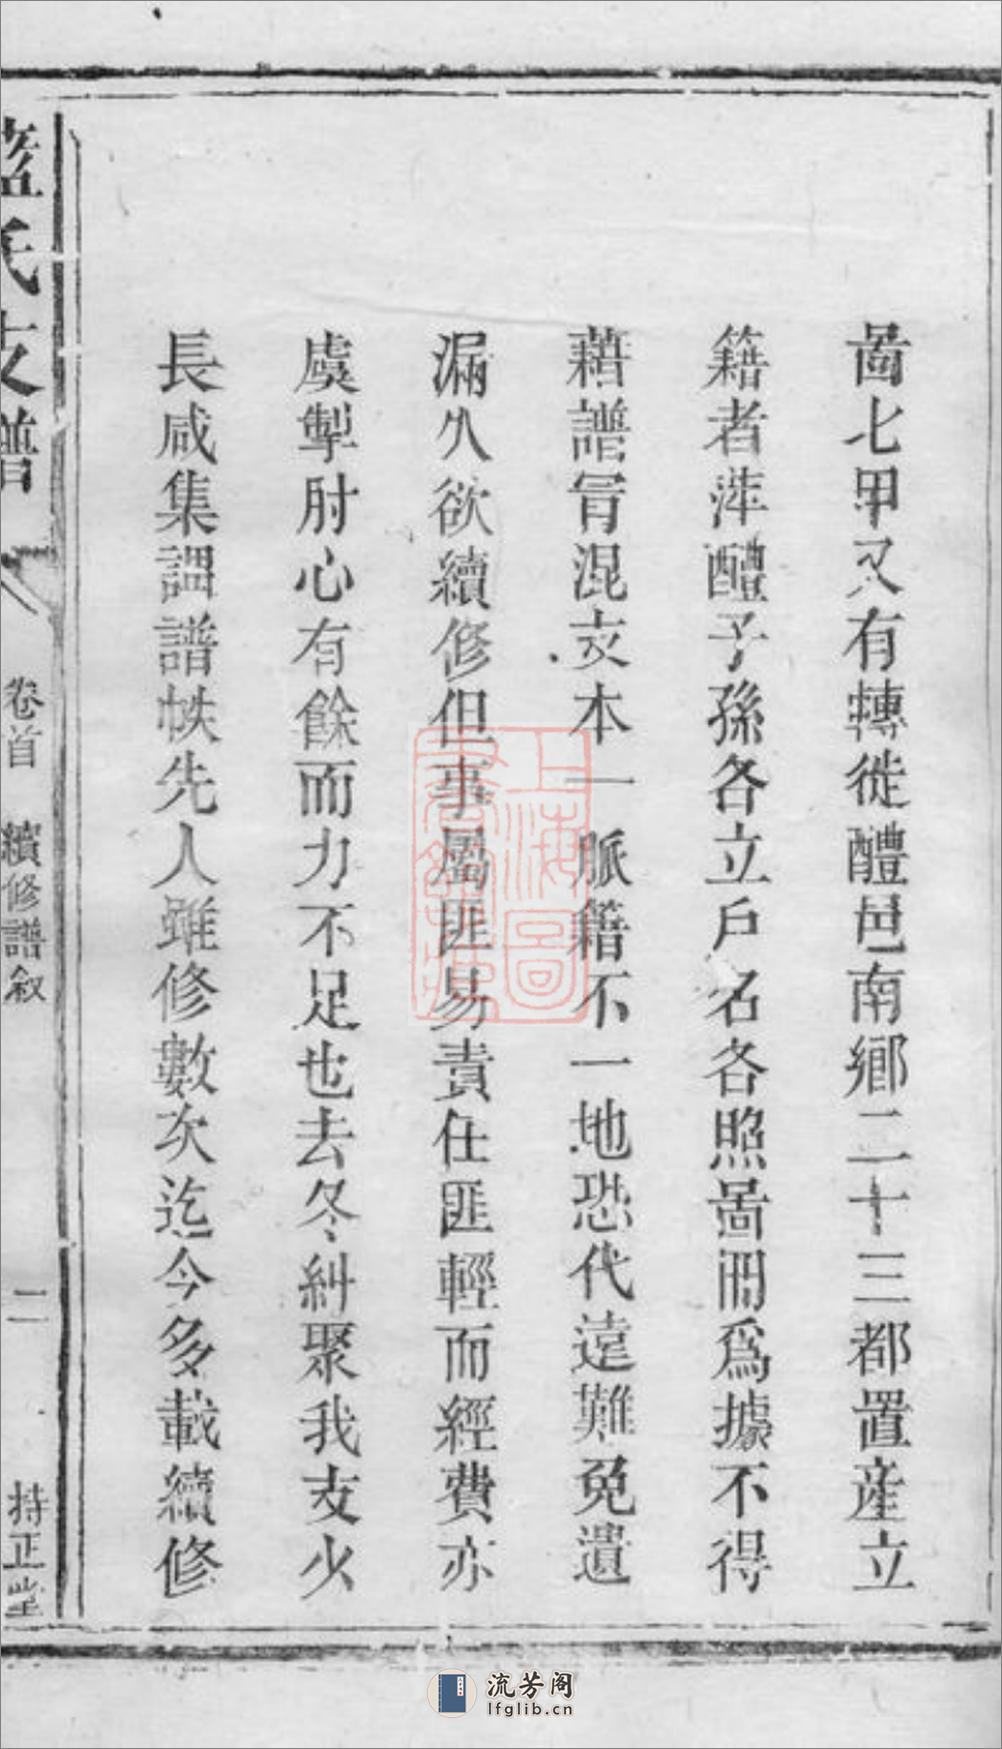 啚七甲又有轉徙醴邑南鄉二十三都置産立
籍者萍醴子孫各立戶名各照啚冊爲據不得
藉譜冐混支本一脈籍不一地恐代遠難免遺
漏久欲續修但事屬匪易責任匪輕而經費亦
虞掣肘心有餘而力不足也去冬糾聚我支少
長咸集謌譜帙先人雖修數次迄今多載續修
藍氏支譜
卷首 續修譜叙
二
持正堂
上海圖書館藏
流芳阁
lfglib.cn